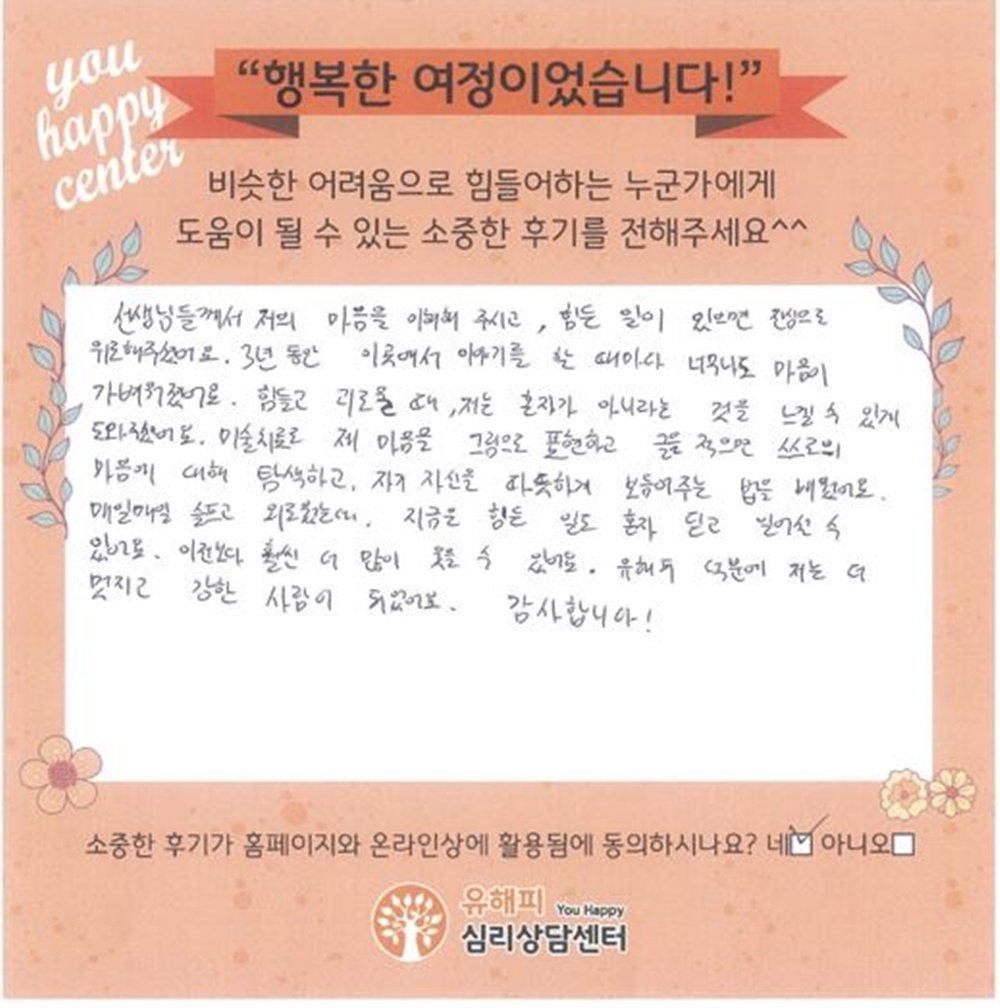 you
happy
center
“행복한 여정이었습니다!”
비슷한 어려움으로 힘들어하는 누군가에게
도움이 될 수 있는 소중한 후기를 전해주세요^^
선생님들께서 저의 마음을 이해해 주시고, 힘든 일이 있으면 진심으로
위로해주셨어요. 3년 동안 이곳에서 이야기를 할 때마다 너무나도 마음이
가벼워졌어요. 힘들고 괴로울 때, 저는 혼자가 아니라는 것을 느낄 수 있게
도와주셨어요. 미술치료로 제 마음을 그림으로 표현하고 글을 적으면 스스로의
마음에 대해 탐색하고, 자기 자신을 따뜻하게 보듬어주는 법을 배웠어요.
매일매일 슬프고 외로웠는데, 지금은 힘든 일도 혼자 딛고 일어설 수
있어요. 이전보다 훨씬 더 많이 웃을 수 있어요. 유해피 덕분에 저는 더
멋지고 강한 사람이 되었어요. 감사합니다!
소중한 후기가 홈페이지와 온라인상에 활용됨에 동의하시나요? 네 아니오
유해피 You Happy
심리상담센터